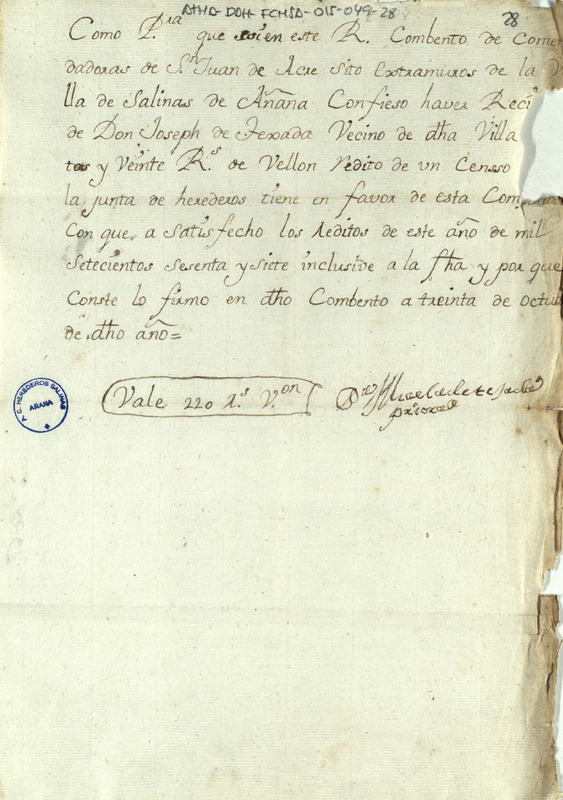 ATHA-DAH-FCHSA-015-049-28
28
Como P.ra que soi en este R. Combento de Comen
dadoras de S.n Juan de Acre Sito Extramuros de la V
lla de Salinas de Añana Confieso haver Reci
de Don Joseph de Texada Vecino de dha Villa
tos y Veinte R.s de Vellon redito de un Censso
la junta de herederos tiene en favor de esta Com
Con que a satisfecho los Reditos de este año de mil
Setecientos sesenta y siete inclusive a la fha y por que
Conste lo firmo en dho Combento a treinta de Octub
de dho año=
Vale 220 R.s V.on
priora
Y C. HEREDEROS SALINAS
AÑANA